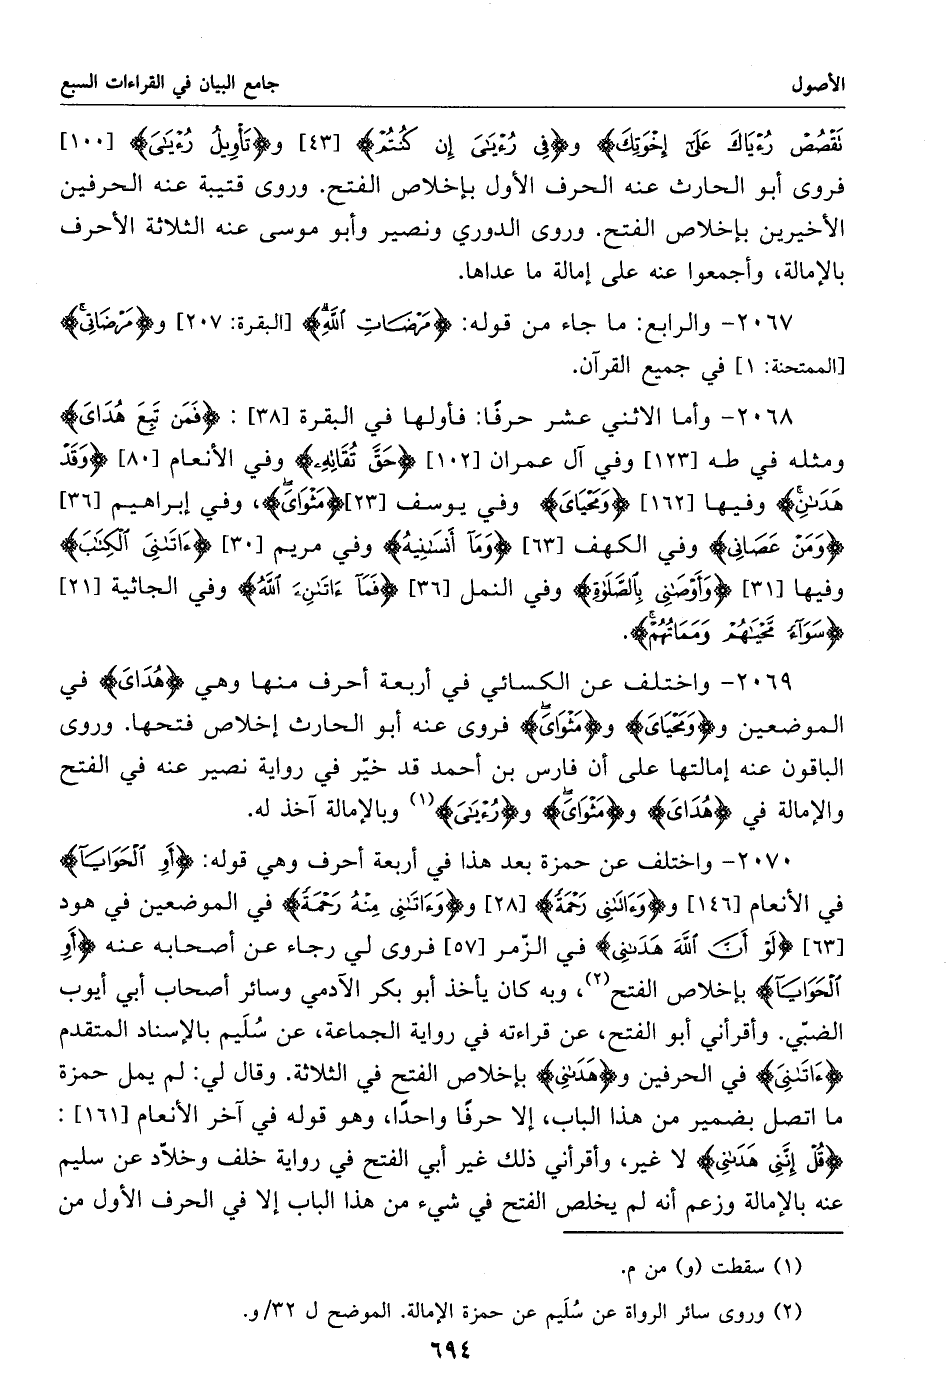 الأصول جامع البيان في القراءات السبع
نَقْصُصْ رُءْيَاكَ عَلَىٰٓ إِخْوَتِكَ﴾ و﴿فِى رُءْيَٰىَ إِن كُنتُمْ﴾ [٤٣] و﴿تَأْوِيلُ رُءْيَٰىَ﴾ [١٠٠]
فروى أبو الحارث عنه الحرف الأول بإخلاص الفتح. وروى قتيبة عنه الحرفين
الأخيرين بإخلاص الفتح. وروى الدوري ونصير وأبو موسى عنه الثلاثة الأحرف
بالإمالة، وأجمعوا عنه على إمالة ما عداها.
٢٠٦٧- والرابع: ما جاء من قوله: ﴿مَرْضَاتِ ٱللَّهِۗ﴾ [البقرة: ٢٠٧] و﴿مَرْضَاتِىۚ﴾
[الممتحنة: ١] في جميع القرآن.
٢٠٦٨- وأما الاثني عشر حرفًا: فأولها في البقرة [٣٨] : ﴿فَمَن تَبِعَ هُدَاىَ﴾
ومثله في طه [١٢٣] وفي آل عمران [١٠٢] ﴿حَقَّ تُقَاتِهِۦ﴾ وفي الأنعام [٨٠] ﴿وَقَدْ
هَدَىٰنِۚ﴾ وفيها [١٦٢] ﴿وَمَحْيَاىَ﴾ وفي يوسف [٢٣]﴿مَثْوَاىَۖ﴾، وفي إبراهيم [٣٦]
﴿وَمَنْ عَصَانِى﴾ وفي الكهف [٦٣] ﴿وَمَآ أَنسَىٰنِيهُ﴾ وفي مريم [٣٠] ﴿ءَاتَىٰنِىَ ٱلْكِتَٰبَ﴾
وفيها [٣١] ﴿وَأَوْصَٰنِى بِٱلصَّلَوٰةِ﴾ وفي النمل [٣٦] ﴿فَمَآ ءَاتَىٰنِۦَ ٱللَّهُ﴾ وفي الجاثية [٢١]
﴿سَوَآءً مَّحْيَاهُمْ وَمَمَاتُهُمْۚ﴾.
٢٠٦٩- واختلف عن الكسائي في أربعة أحرف منها وهي ﴿هُدَاىَ﴾ في
الموضعين و﴿وَمَحْيَاىَ﴾ و﴿مَثْوَاىَۖ﴾ فروى عنه أبو الحارث إخلاص فتحها. وروى
الباقون عنه إمالتها على أن فارس بن أحمد قد خيّر في رواية نصير عنه في الفتح
والإمالة في ﴿هُدَاىَ﴾ و﴿مَثْوَاىَۖ﴾ و﴿رُءْيَٰىَ﴾(١) وبالإمالة آخذ له.
٢٠٧٠- واختلف عن حمزة بعد هذا في أربعة أحرف وهي قوله: ﴿أَوِ ٱلْحَوَايَآ﴾
في الأنعام [١٤٦] و﴿وَءَاتَىٰنِى رَحْمَةً﴾ [٢٨] و﴿وَءَاتَىٰنِى مِنْهُ رَحْمَةً﴾ في الموضعين في هود
[٦٣] ﴿لَوْ أَنَّ ٱللَّهَ هَدَىٰنِى﴾ في الزّمر [٥٧] فروى لي رجاء عن أصحابه عنه ﴿أَوِ
ٱلْحَوَايَآ﴾ بإخلاص الفتح(٢)، وبه كان يأخذ أبو بكر الآدمي وسائر أصحاب أبي أيوب
الضبّي. وأقرأني أبو الفتح، عن قراءته في رواية الجماعة، عن سُلَيم بالإسناد المتقدم
﴿ءَاتَىٰنِىَ﴾ في الحرفين و﴿هَدَىٰنِى﴾ بإخلاص الفتح في الثلاثة. وقال لي: لم يمل حمزة
ما اتصل بضمير من هذا الباب، إلا حرفًا واحدًا، وهو قوله في آخر الأنعام [١٦١] :
﴿قُلْ إِنَّنِى هَدَىٰنِى﴾ لا غير، وأقرأني ذلك غير أبي الفتح في رواية خلف وخلاّد عن سليم
عنه بالإمالة وزعم أنه لم يخلص الفتح في شيء من هذا الباب إلا في الحرف الأول من
(١) سقطت (و) من م.
(٢) وروى سائر الرواة عن سُلَيم عن حمزة الإمالة. الموضح ل ٣٢/و.
٦٩٤